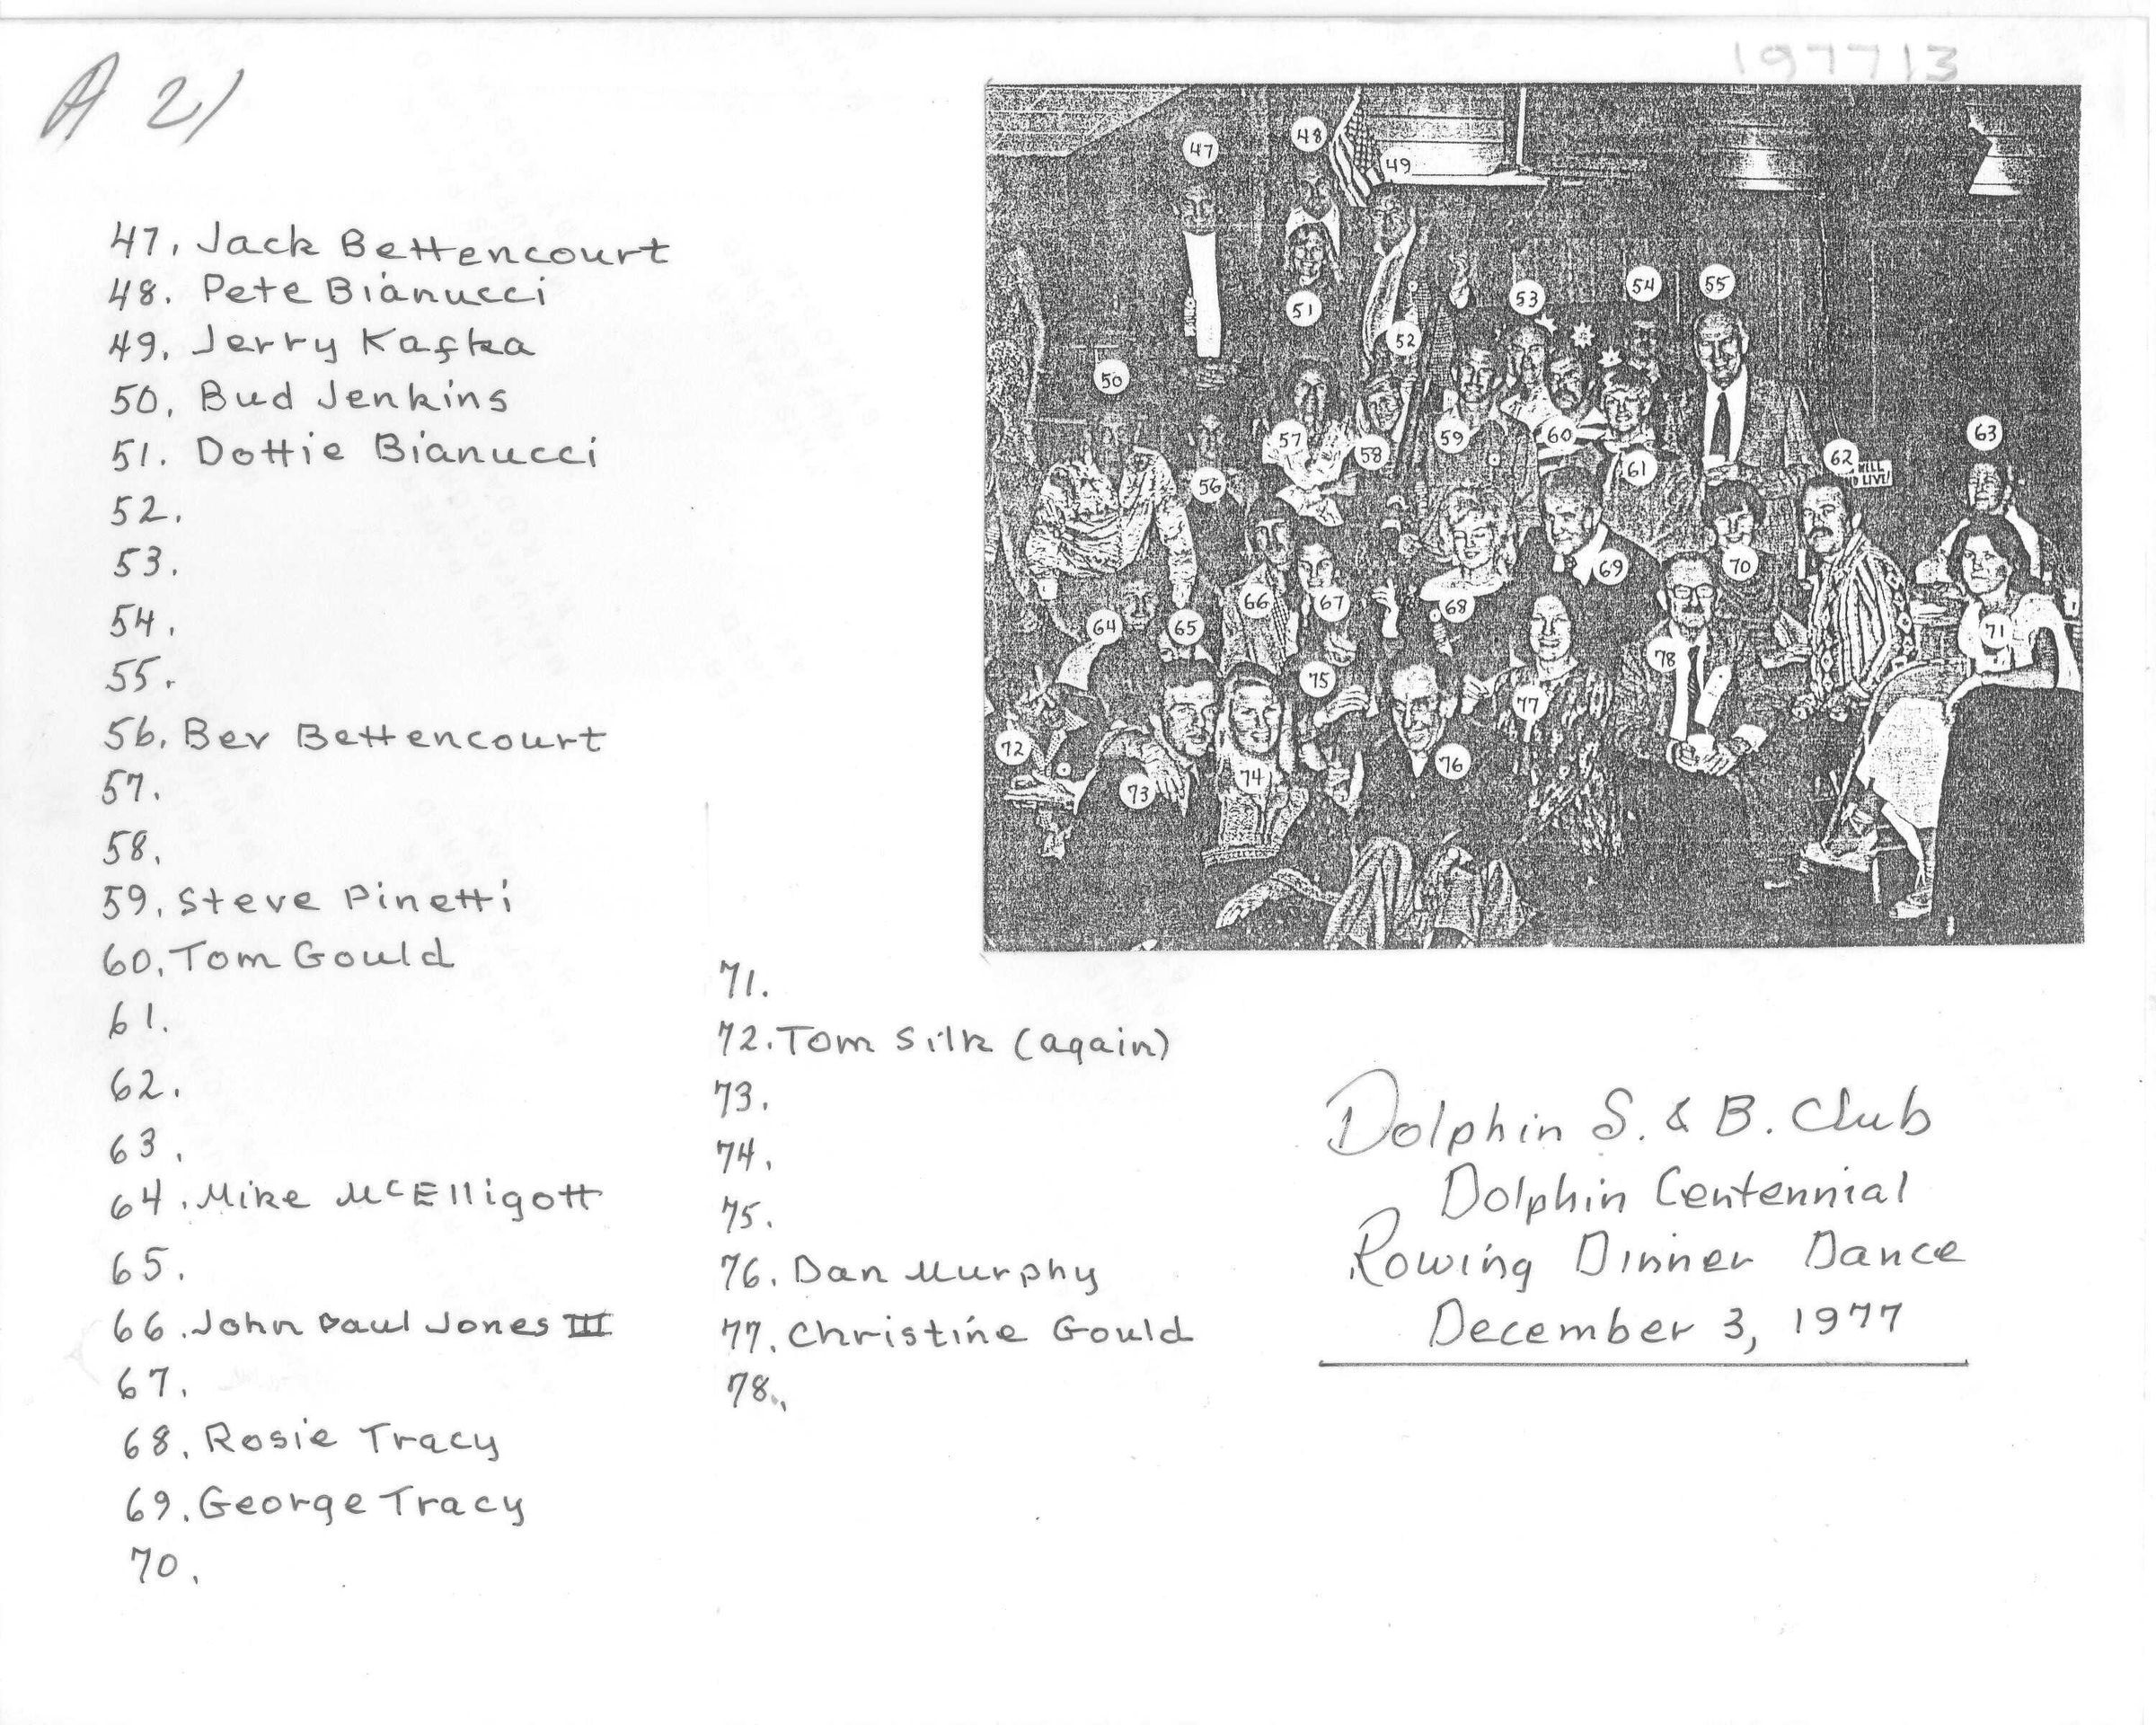 A 21
197713
47. Jack Bettencourt
48. Pete Bianucci
49. Jerry Kafka
50. Bud Jenkins
51. Dottie Bianucci
52.
53.
54.
55.
56. Bev Bettencourt
57.
58.
59. Steve Pinetti
60. Tom Gould
61.
62.
63.
64. Mike McElligott
65.
66. John Paul Jones III
67.
68. Rosie Tracy
69. George Tracy
70.
71.
72. Tom Silk (again)
73.
74.
75.
76. Dan Murphy
77. Christine Gould
78.
47
48
49
50
51
52
53
54
55
56
57
58
59
60
61
62
63
64
65
66
67
68
69
70
71
72
73
74
75
76
77
78
LIVE!
Dolphin S. & B. Club
Dolphin Centennial
Rowing Dinner Dance
December 3, 1977